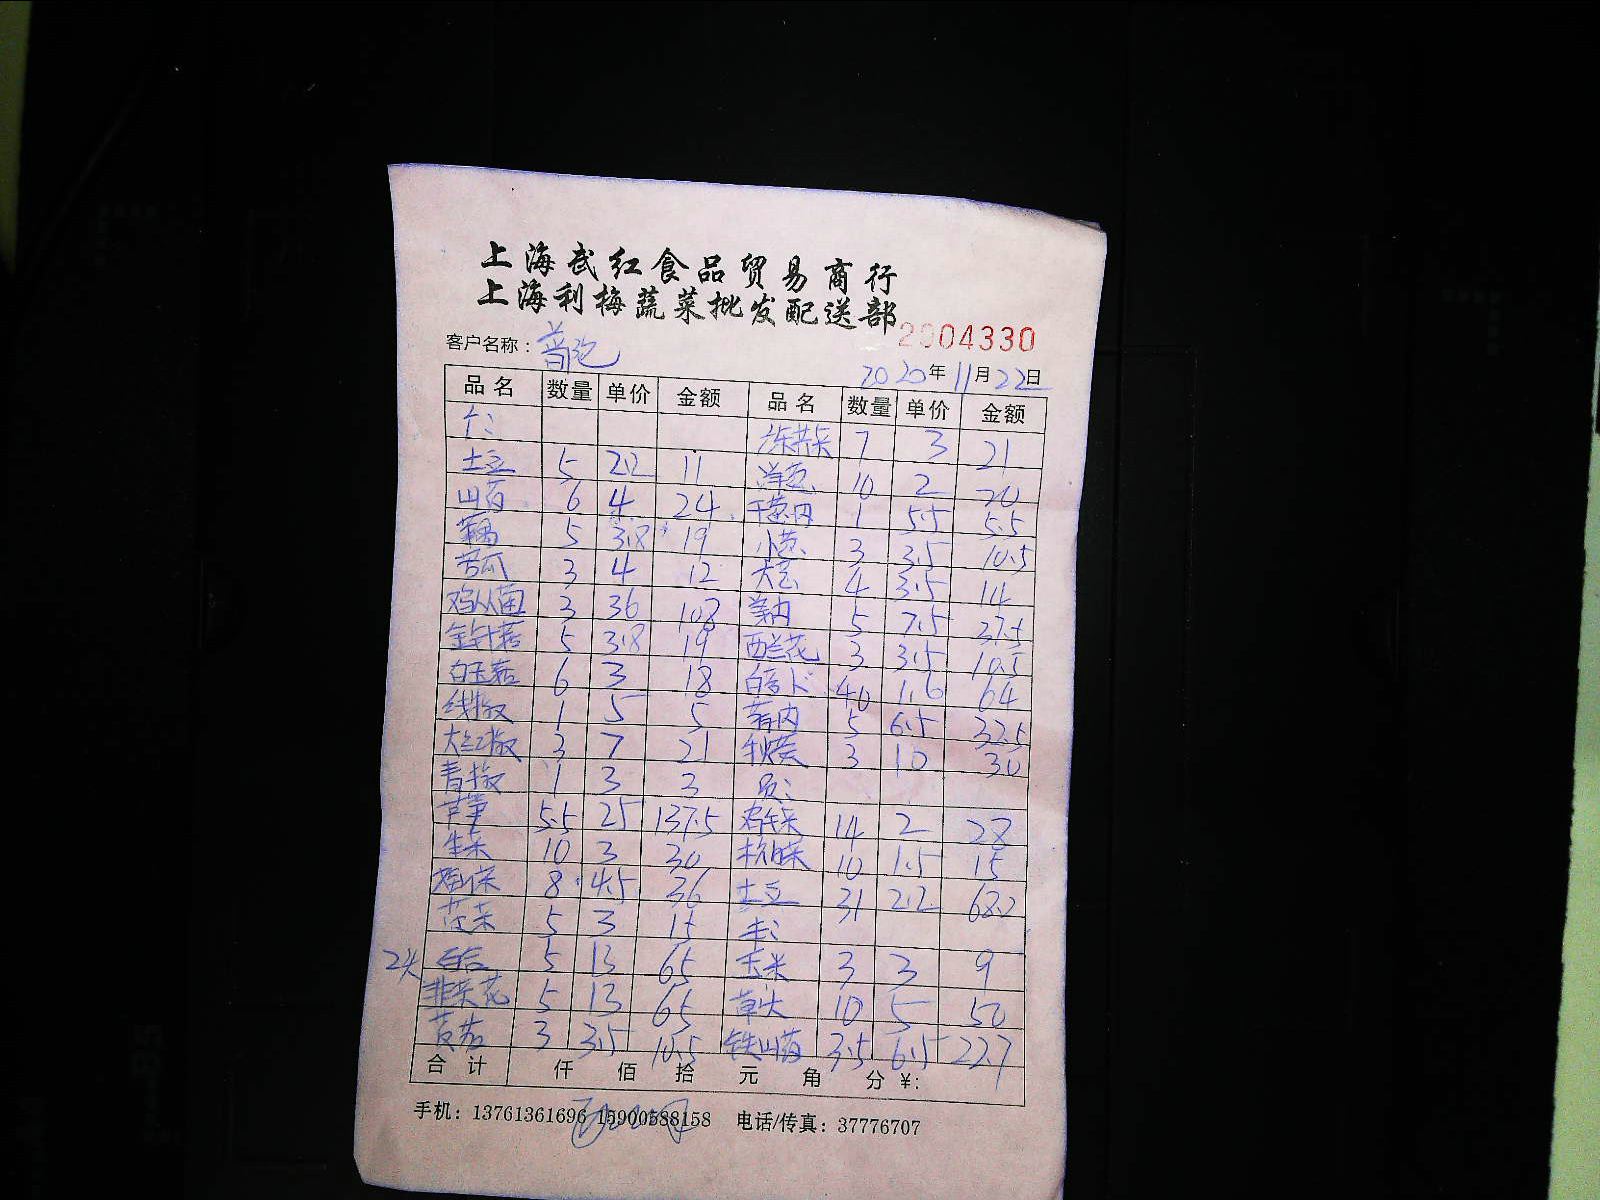 上海武红食品贸易商行
上海利梅蔬菜批发配送部
2004330
客户名称：
2020年11月22日
品名 数量 单价 金额 品名 数量 单价 金额
7 3 21
土豆 5 2.2 11 洋葱 10 2 20
山药 6 4 24 1 5.5 5.5
藕 5 3.8 19 小葱 3 3.5 10.5
苦瓜 3 4 12 4 3.5 14
鸡从菌 3 36 108 5 7.5 37.5
金针菇 5 3.8 19 西兰花 3 3.5 10.5
白玉菇 6 3 18 白卜 40 1.6 64
线椒 1 5 5 5 6.5 32.5
大红椒 3 7 21 秋葵 3 10 30
青椒 1 3 3
芦笋 5.5 25 137.5 14 2 28
生菜 10 3 30 10 1.5 15
8 4.5 36 土豆 31 2.2 68.2
5 3 15
2头 百合 5 13 65 玉米 3 3 9
韭菜花 5 13 65 草头 10 5 50
3 3.5 10.5 铁山药 3.5 6.5 22.7
合计 仟 佰 拾 元 角 分 ¥:
手机：13761361696 15900588158 电话/传真：37776707